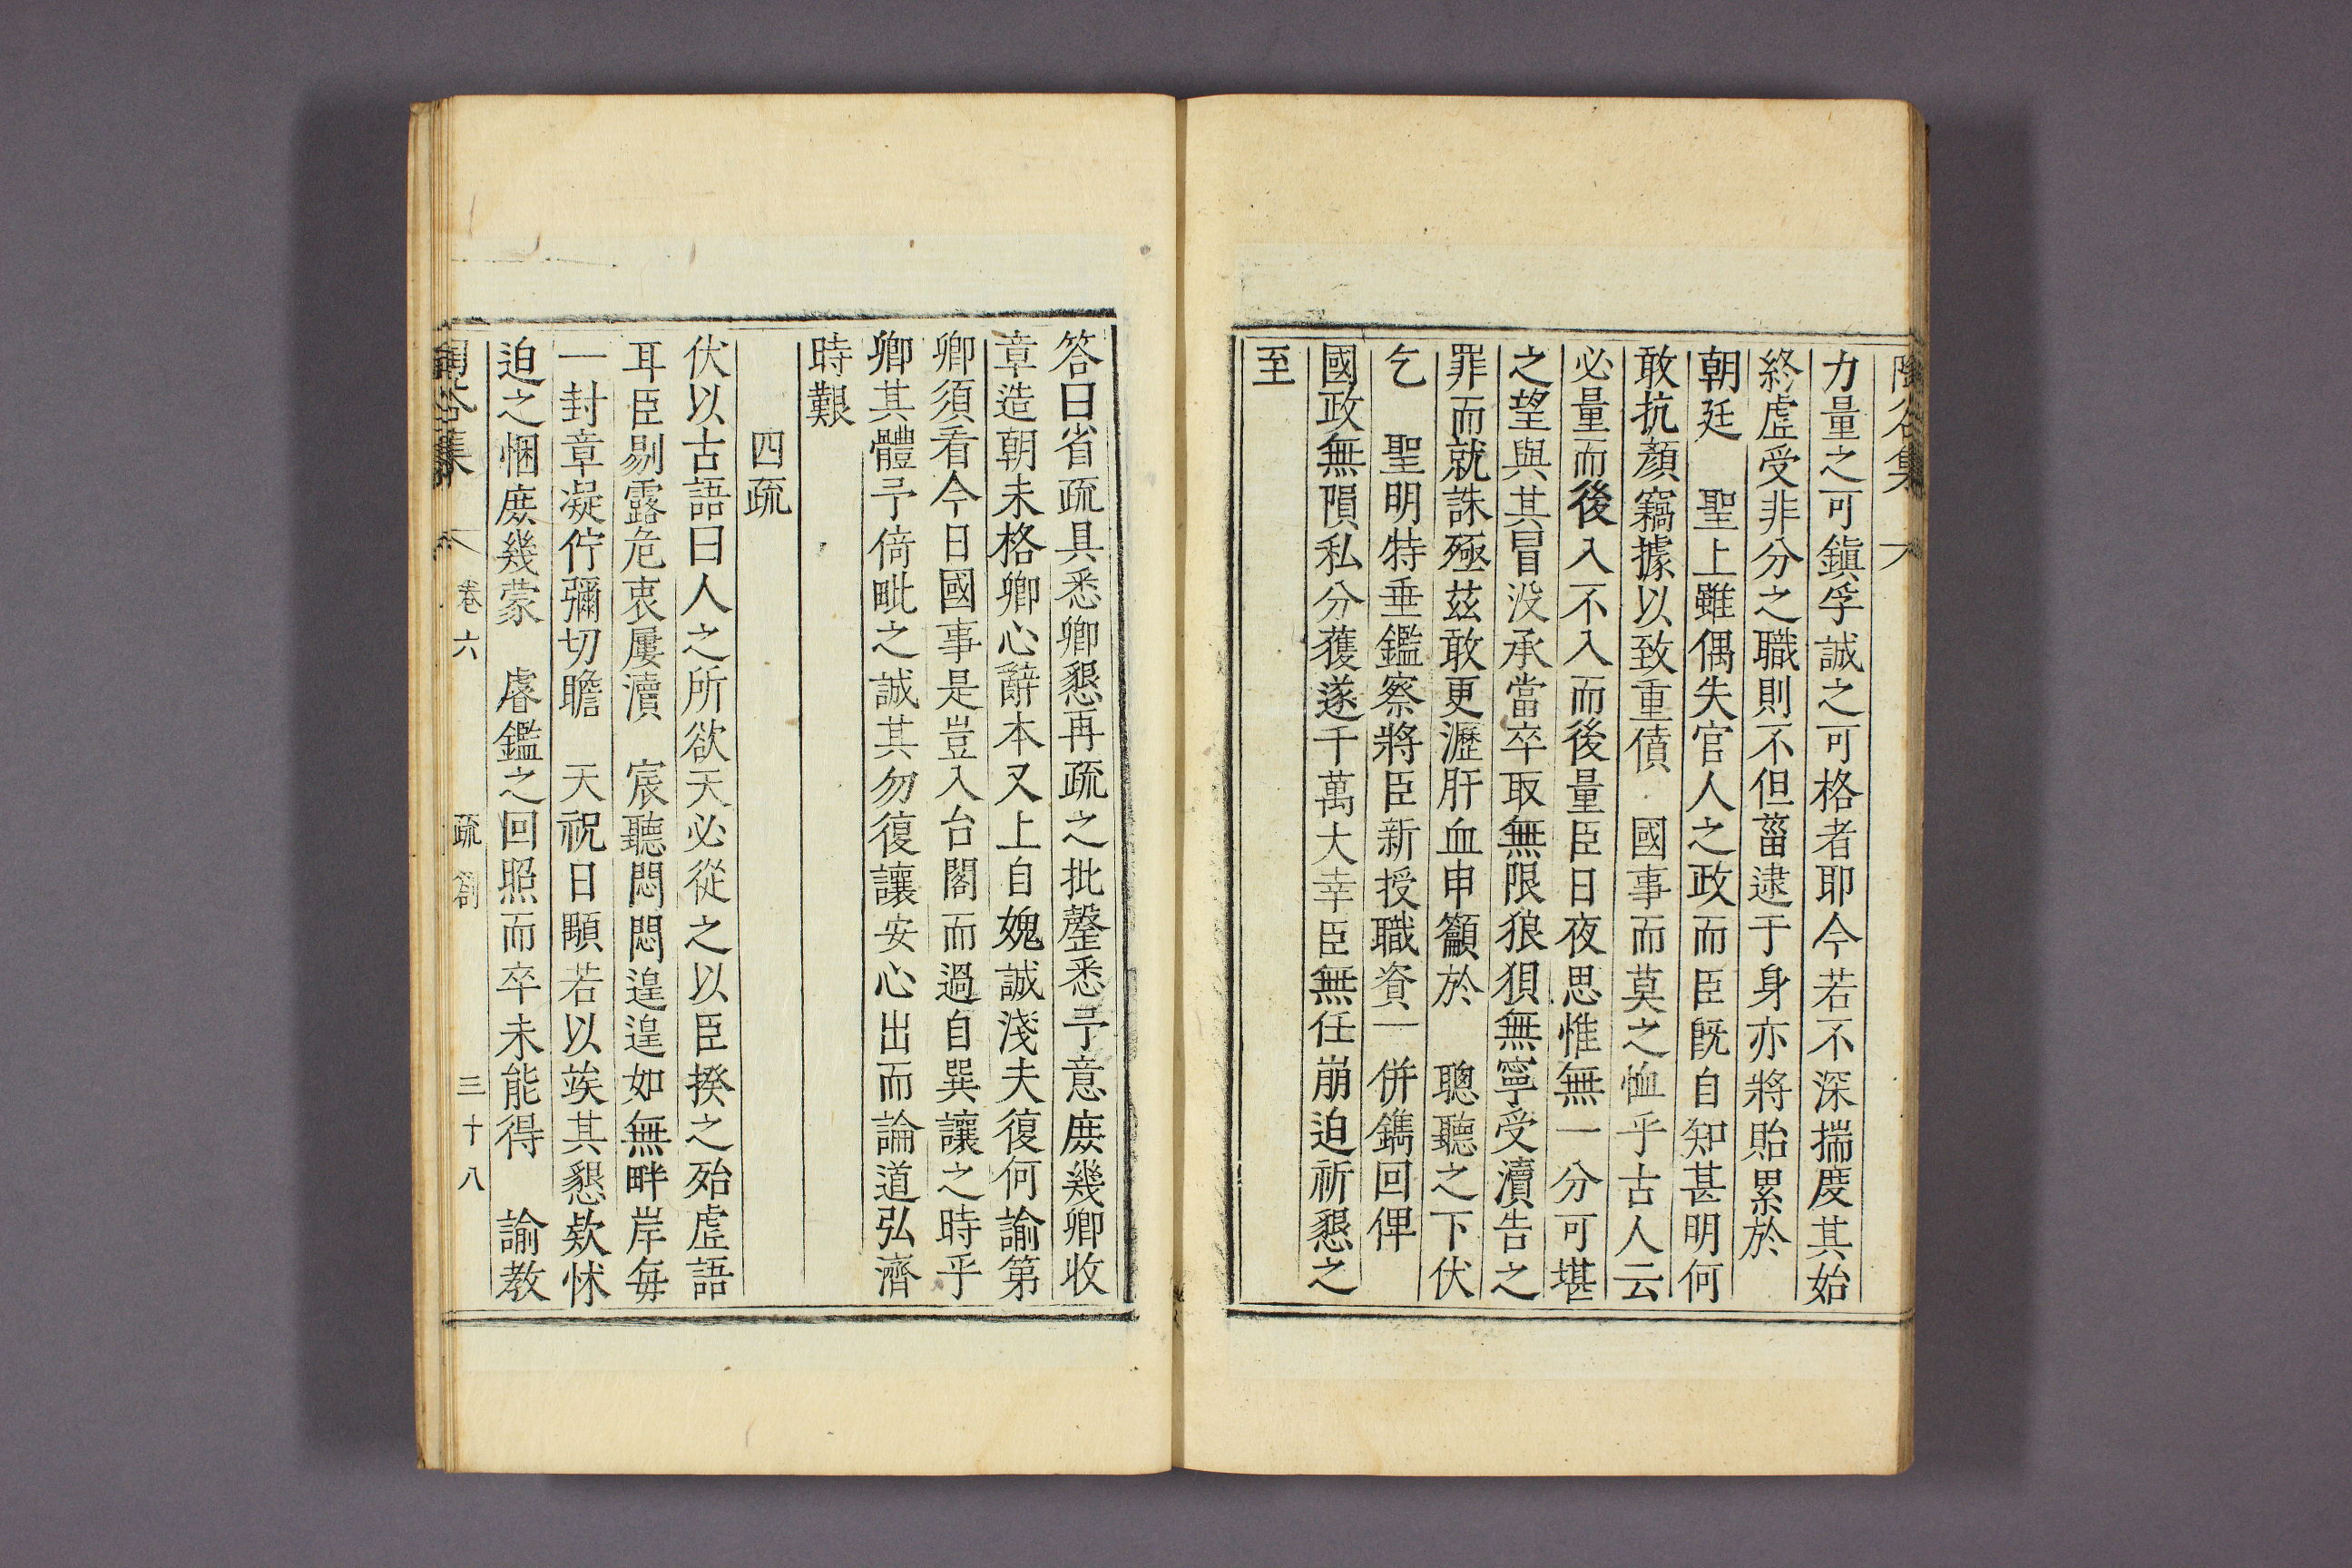 力量之可鎭孚誠之可格者耶今若不深揣度其始
終虛受非分之職則不但菑逮于身亦將貽累於
朝廷　聖上雖偶失官人之政而臣旣自知甚明何
敢抗顏竊據以致重債　國事而莫之恤乎古人云
必量而後入不入而後量臣日夜思惟無一分可堪
之望與其冒没承當卒取無限狼狽無寧受瀆告之
罪而就誅殛茲敢更瀝肝血申籲於　聰聽之下伏
乞　聖明特垂鑑察將臣新授職資一併鐫回俾
國政無隕私分獲遂千萬大幸臣無任崩迫祈懇之
至
答曰省疏具悉卿懇再疏之批罄悉予意庶幾卿收
章造朝未格卿心辭本又上自媿誠淺夫復何諭第
卿須看今日國事是豈入台閣而過自巽讓之時乎
卿其體予倚毗之誠其勿復讓安心出而論道弘濟
時艱
四疏
伏以古語曰人之所欲天必從之以臣揆之殆虛語
耳臣剔露危衷屢瀆　宸聽悶悶遑遑如無畔岸每
一封章凝佇彌切瞻　天祝日顒若以竢其懇欵怵
迫之悃庶幾蒙　睿鑑之回照而卒未能得　諭教
卷六　疏箚　三十八